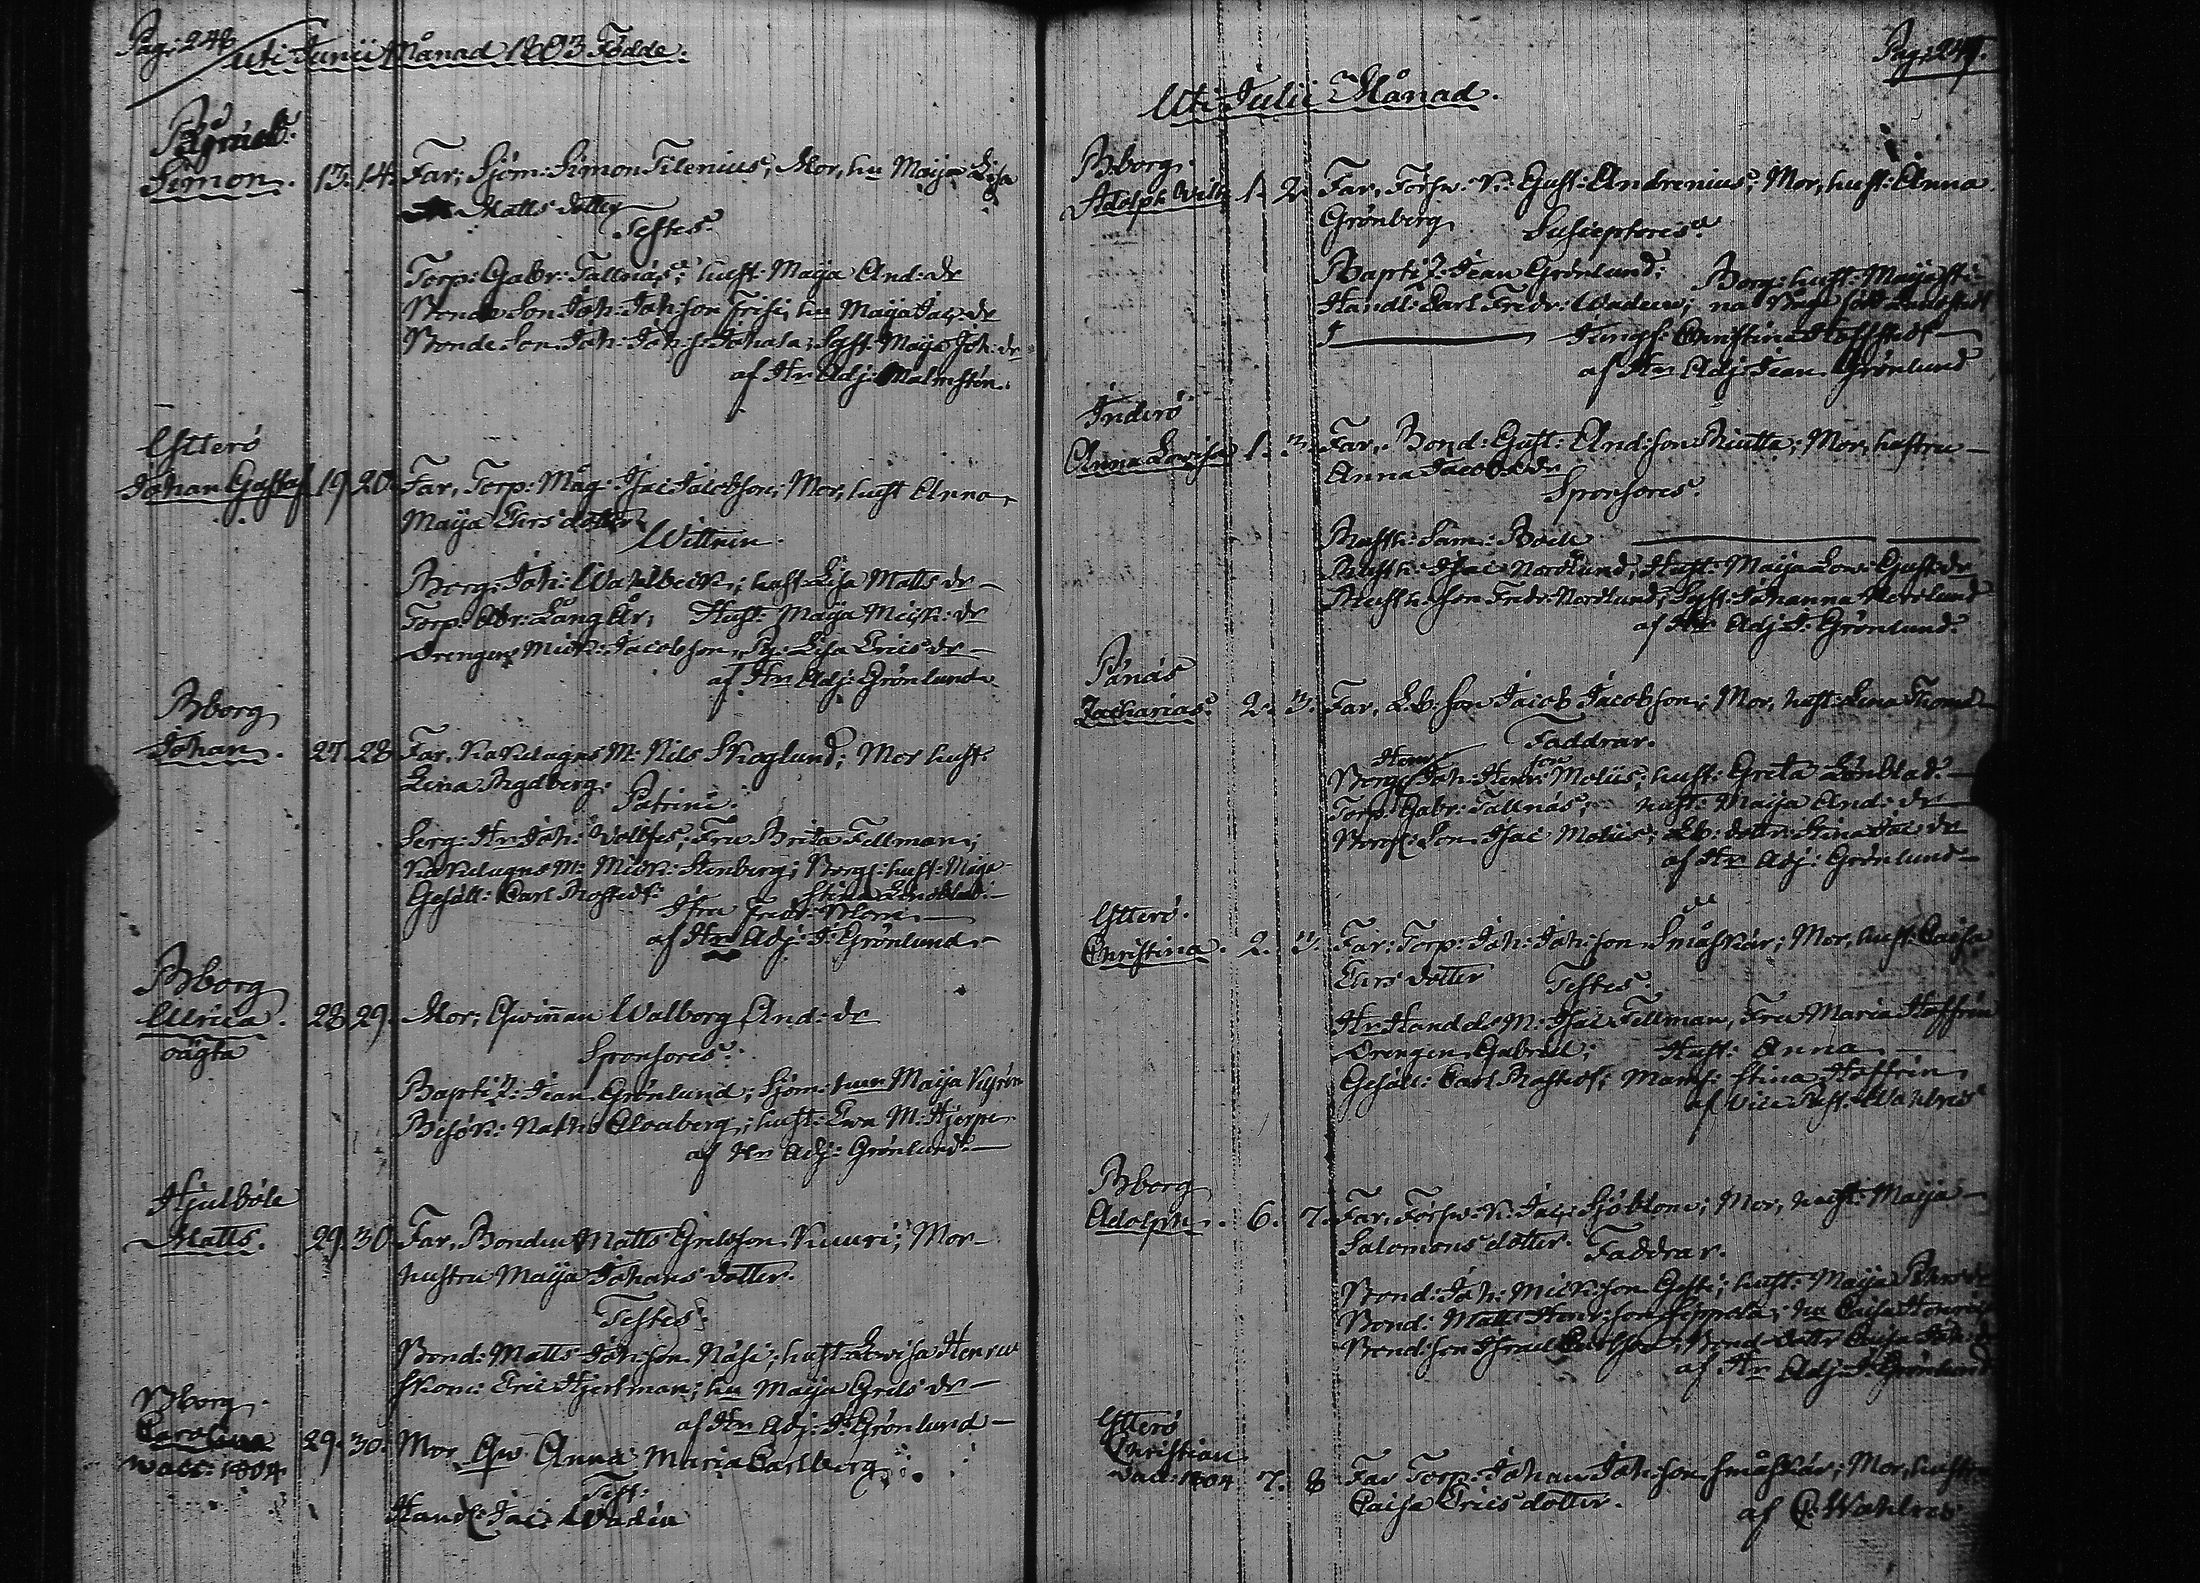 Pag: 248
Uti Junii Månad 1803 Födde.
Simon. 13. 14. Far, Sjöm: Simon Tilenius; Mor, hu Maija Lisa
Matts dotter
Testes.
Torp: Gabr: Tallnäs; hust: Maija And: dr
Bonde Son Joh: Joh:son Frisi, hu Maija Jac: dr
Bonde Son Joh: Joh:s: Johala; Syst: Maija Joh: dr
af Hr Adj: Malmstén.
Ytterö
Johan Gustaf 19. 20. Far, Torp: Måg: Isac Jacobson; Mor, hust Anna
Maija Ehrs dotter
Wittnen
Borg: Joh: Wahlbeck; hust Lisa Matts dr
Torp: Abr: Långkår, Hust: Maija Mick: dr
Drengen Mick: Jacobson, Pig: Lisa Erics dr
af Hr Adj: Grönlund
Bborg
Johan. 27. 28 Far, Kakelugns M: Nils Skoglund; Mor hust:
Lena Ångdberg.
Patrini.
Serg: Hr Joh: Voltfes, Fru Brita Fellman;
Kakelugns M: Mick: Stenberg; Borg: hust: Maija
Gesäll: Carl Rostedt Stina Lindblad.
Jfru Fredr: Blom
af Hr Adj: J. Grönlund
Bborg
Ulrica. 28 29. Mor, Qwinnan Walborg And: dr
oägta
Sponsores.
Bapti: Jean Grönlund; Sjöm: hu Maija Kyrön
Besök: Nath: Aloaberg; hust: Ewa M. Hjerpe
af Hr Adj: Grönlund
Hjulböle
Matts. 29. 30 Far, Bonden Matts Grelsson Knuuri; Mor
hustru Maija Johans dotter.
Testes.
Bond: Matts Joh:son Näsi; hust: Lowisa Henr:
Skom: Eric Hjertman; hu Maija Grels dr
af Hr Adj: J. Grönlund
Bborg.
Carolina 29. 30. Mor Qw. Anna Maria Carlberg
Vacc: 1804
Test:
Handl: Jac: Wadén
Pag: 249.
Uti Julii Månad.
Bborg.
Adolph Wilh 1. 2. Far, Försw: K: Gust: Andrenius; Mor, hust: Anna
Grönberg
Susceptores
Bapti: Jean Grönlund; Borg: hust: Maija Sti:
Handl: Carl Fredr: Wadén;
Jungf: Christina Hoffstedt
af Hr Adj: Jean Grönlund
Inderö
Anna Lowisa 1. 3. Far, Bond: Gust: And:son Riutta; Mor, hustru
Anna Jacobs dr
Sponsores.
Rusth: Sam: Böck
Rusth: Isac Nordlund, Hust: Maija Low: Gust: dr
Rusth: son Fredr: Nordlund; Syst: Johanna Nordlund
af Hr Adj: J: Grönlund.
Pånäs
Zacharias. 2. 3. Far, Lb: son Jacob Jacobson; Mor, hust: Lena Thoms
Faddrar.
Borg: Joh: Henr:son Molüs; hust: Greta Lönblad.
Torp: Gabr: Tallnäs; hust: Maija And: dr
Borg: Son Isac Molüs; Lb: dotter Stina Jac: dr
af Hr Adj: Grönlund
Ytterö.
Christina. 2. 3. Far: Torp: Joh: Joh:son Småskär; Mor, hust: Caisa
Ehrs dotter
Testes.
Hr Handels M: Isac Fellman, Fru Maria Hoffrén
Drengen Gabriel; Hust: Anna
Gesäll: Carl Rostedt; Mams: Stina Hoffrén
af Vice Past: Wahlros
Bborg
Adolph. 6. 7. Far, Försw: K: Jac: Sjöblom; Mor, hust: Maija
Salomons dotter.
Faddrar.
Bond: Joh: Mick:son Gästi; hust: Maija
Bond: Matts Henr:son Seppola; hu Caisa Henrics
Bond: son Isac Carlson, Bond: dottr Caisa Joh: d
af Hr Adj: J: Grönlund
Ytterö
Christian
Vacc: 1804 7. 8 Far Torp: Johan Joh:son Småskär; Mor, hustru
Caisa Erics dotter.
af C: Wahlros